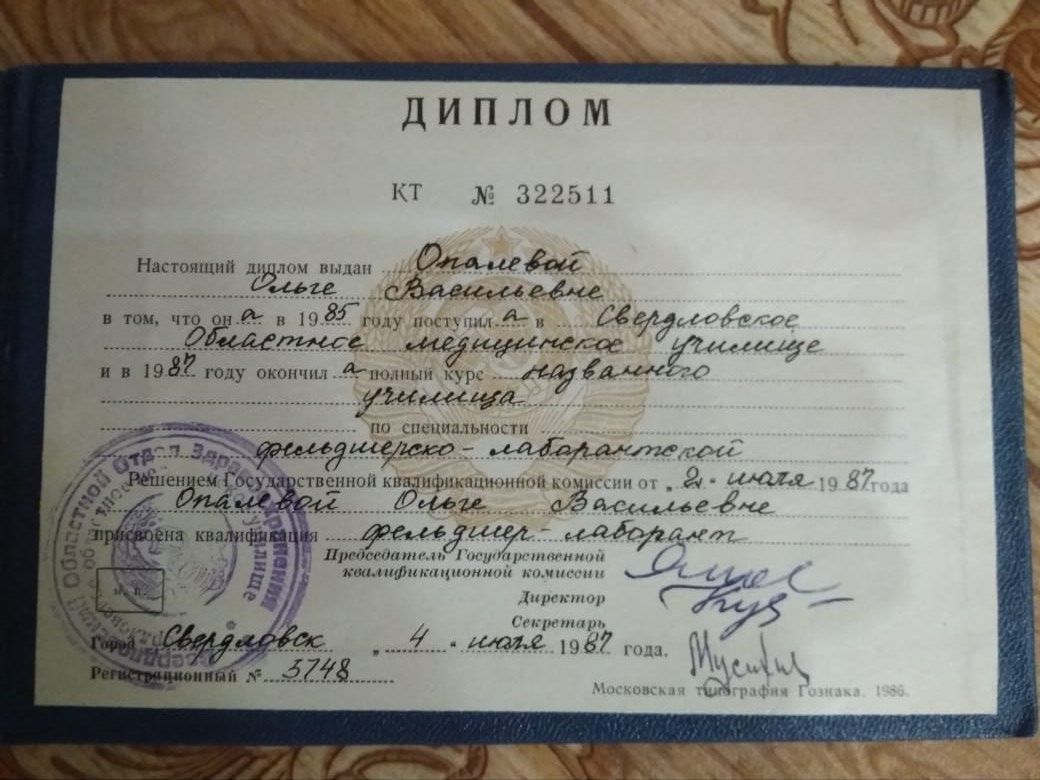 ДИПЛОМ
КТ № 322511
Настоящий диплом выдан Опалевой
Ольге Васильевне
в том, что он а в 19 85 году поступил а в Свердловское
Областное медицинское училище
и в 19 87 году окончил а полный курс названного
училища
по специальности
фельдшерско-лаборантской
Решением Государственной квалификационной комиссии от „2" июля 19 87 года
Опалевой Ольге Васильевне
присвоена квалификация фельдшер-лаборант
Председатель Государственной
квалификационной комиссии
Директор
Секретарь
Город Свердловск „4" июля 19 87 года.
Регистрационный № 3748
Московская типография Гознака. 1986.
Областной Отдел Здравоохранения
училище
м. п.